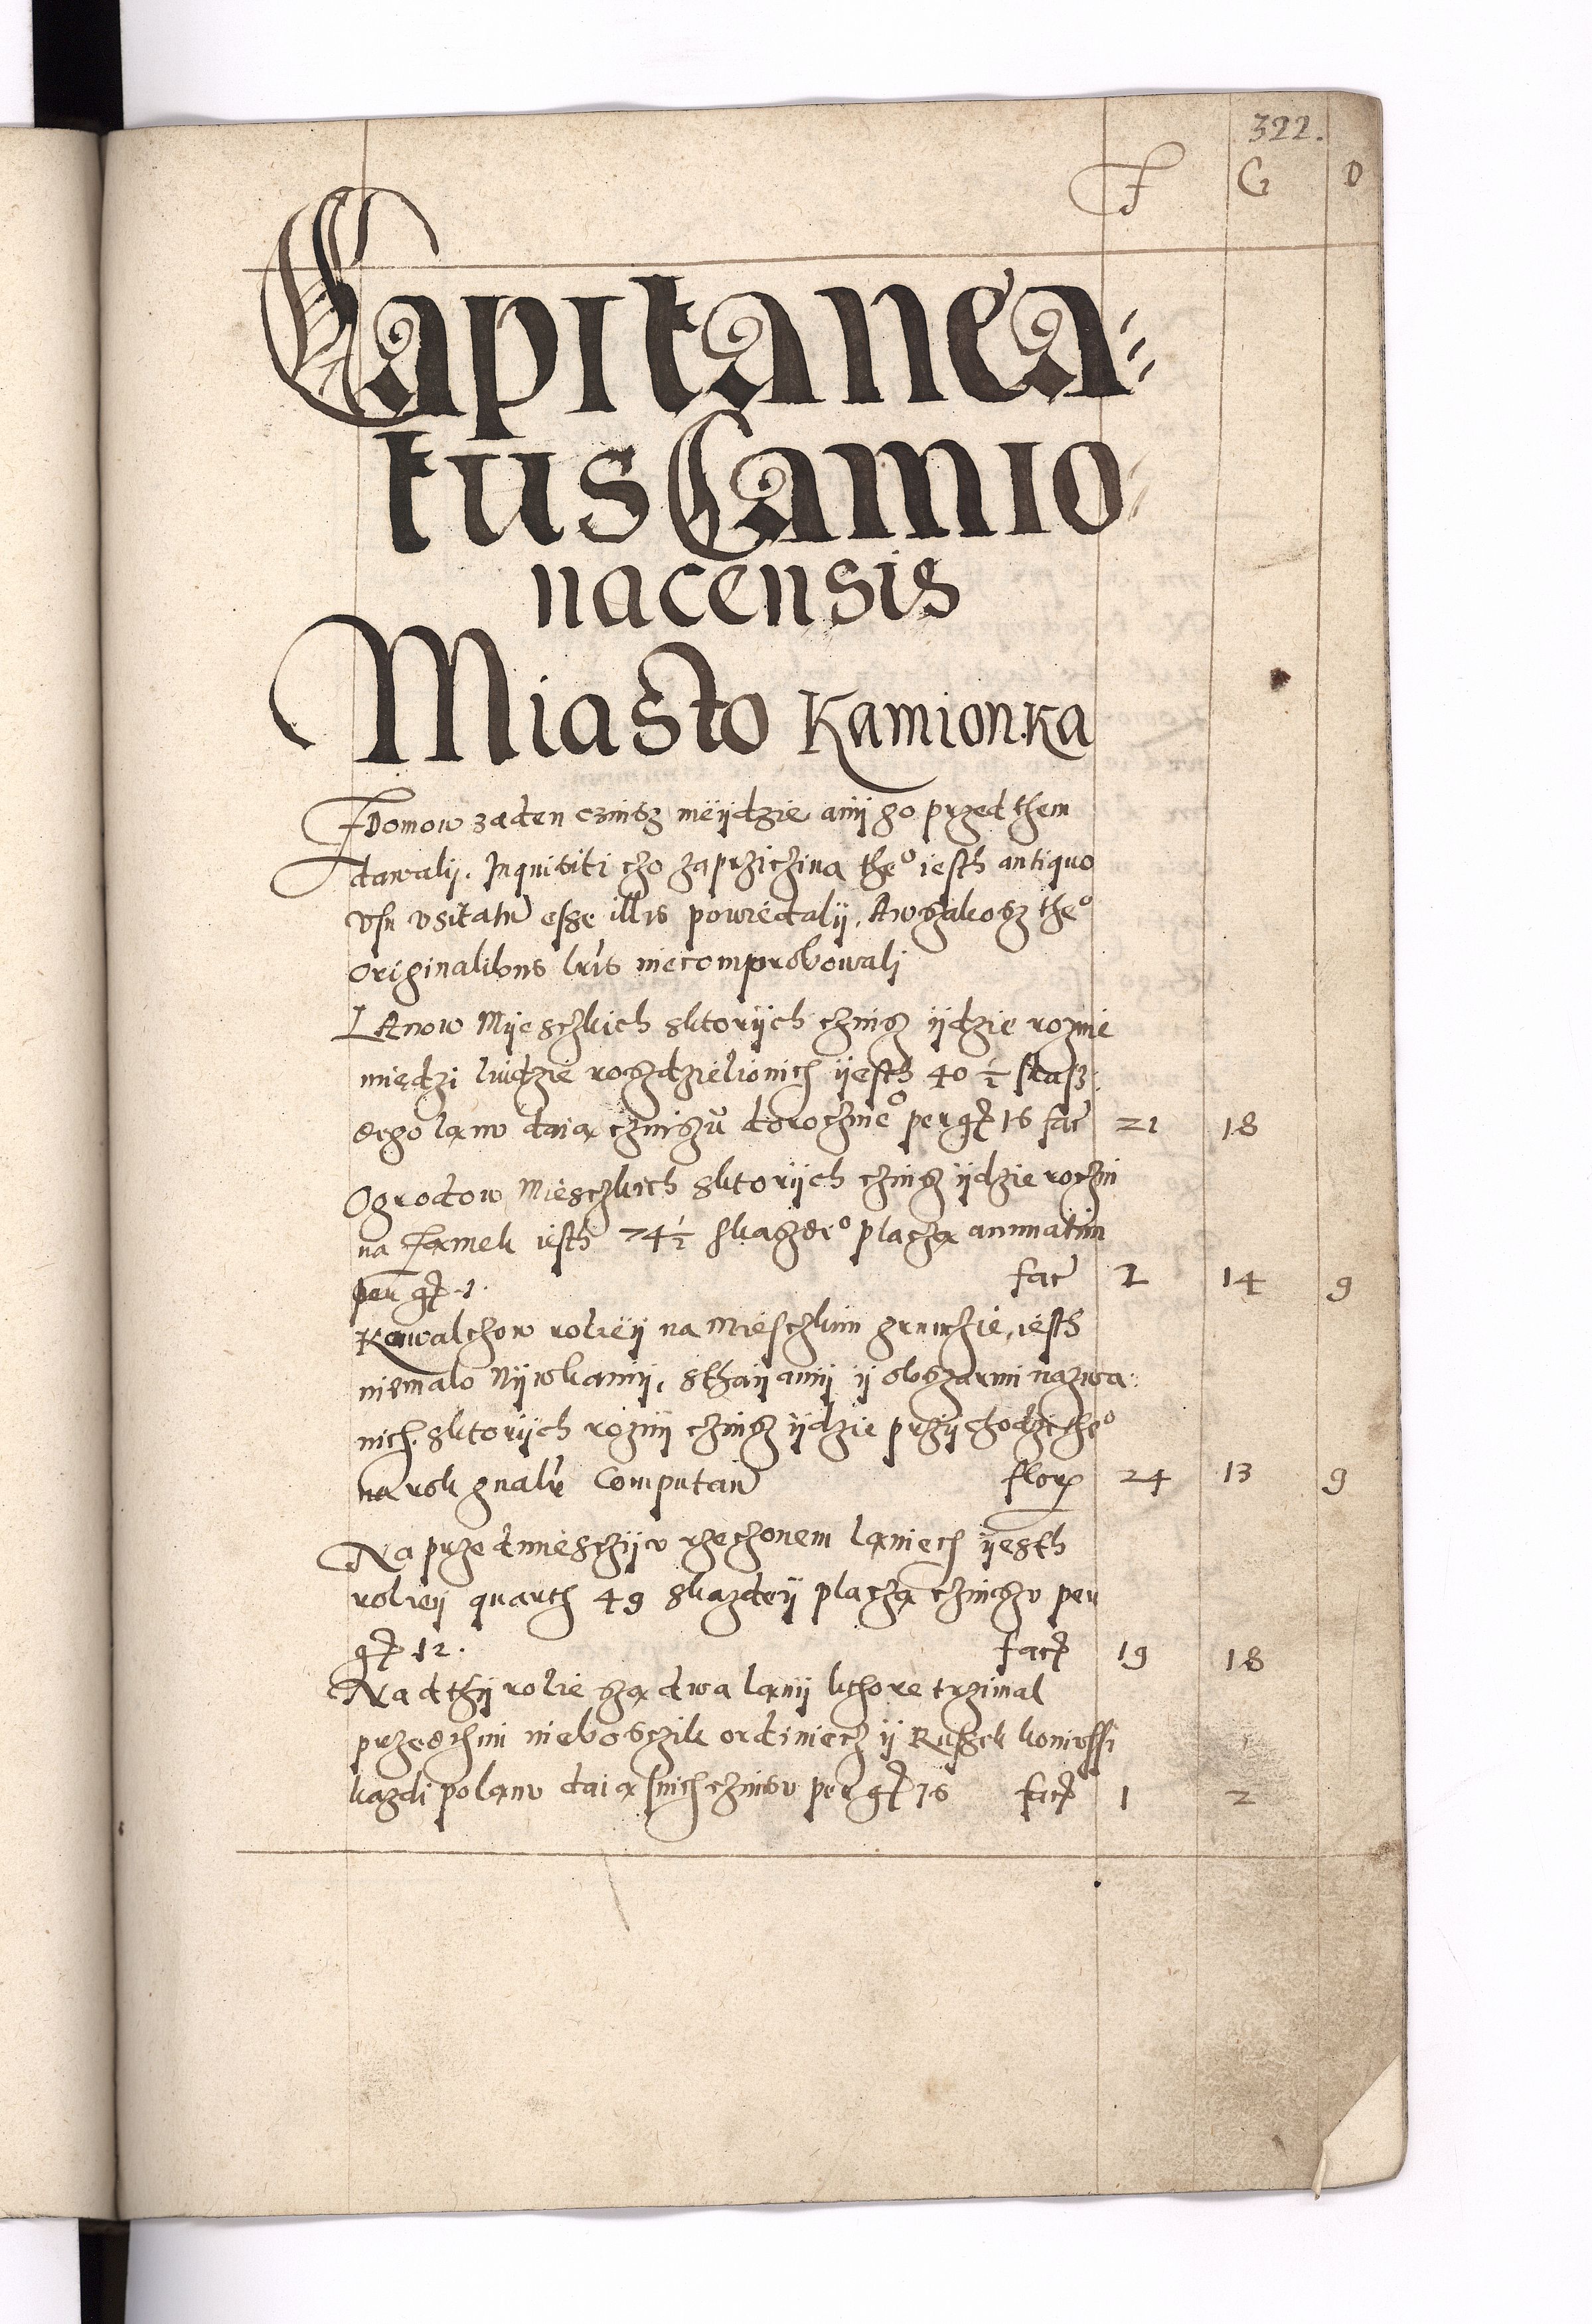 322.
F G D
Capitanea=
tus Camio=
nacensis
Miasto Kamionka
Z Domow zaden czinsz nieijdzie anij go przed them
dawalij. Inquisiti czo za prziczina theo iesth antiquo
vsu vsitatu esse illis powiedalij, A wszakosz theo
Originalibus lris niecomprobowalj
LAnow Mijesczkich sktorijch czinsz ijdzie roznie
miedzi ludzie rozdzielionich ijesth 40 ½ skasz:
dego lanu daia czinszu doroczneo per gr 16 fac 21 18
Ogrodow Miesczkich sktorijch czinsz ijdzie roczni
na Zamek iesth 74 ½ skazdeo placza annuatim
per gr 1. fac 2 14 9
Kawalchow rolieij na Miesczkim gruncie, iesth
niemalo Nijwkamij, sthaijamij ij obszarmi nazwa:
nich. sktorijch roznij czinsz ijdzie przijchodzi theo
na rok gnalr Computan flor 24 13 9
Na przedmiesczijv rzeczonem laniech ijesth
rolieij quarth 49 skazdeij placza czinszv per
gr 12. facit 19 18
Nad thij rolie sza dwa lanij kthore trzimal
przedthim nieboszczik ordiniecz ij Ruszek koniussi
kazdi polanv daia snich czinsv per gr 16 facit 1 2